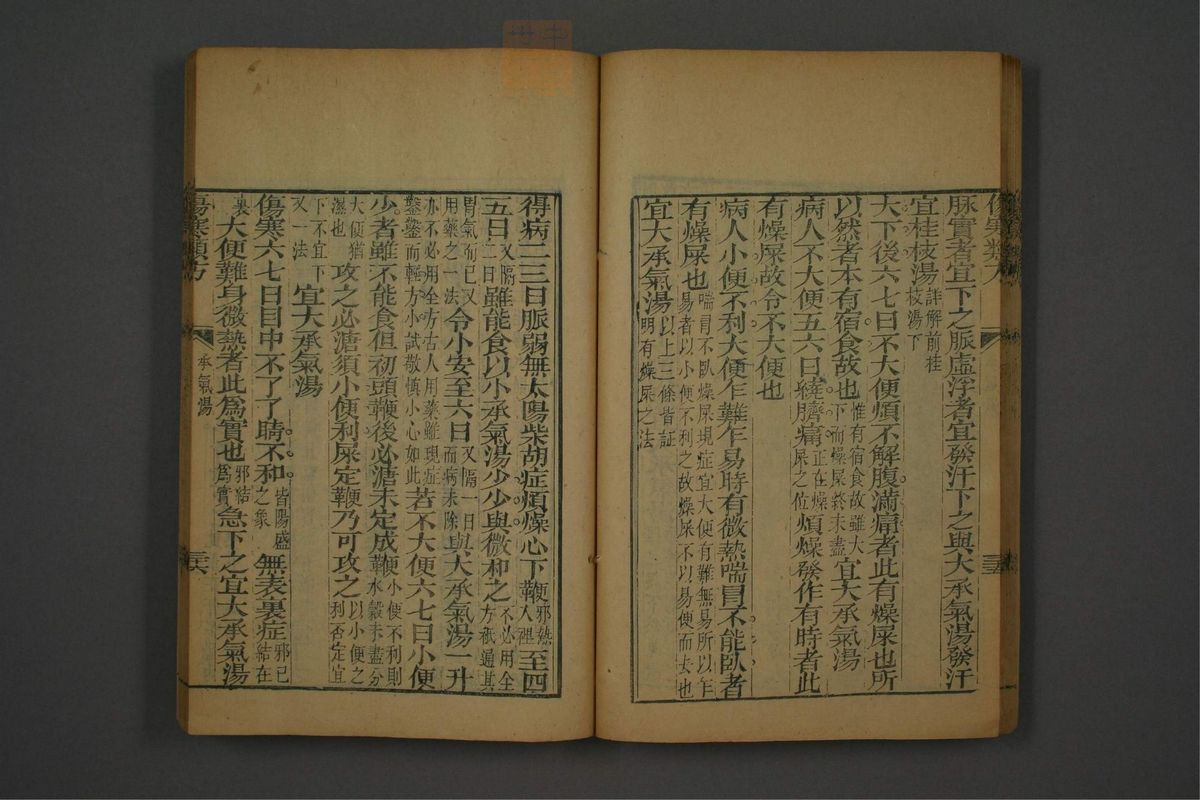 脉實者宜下之脈虛浮者宜發汗下之與大承氣湯發汗
宜桂枝湯詳解前桂枝湯下
大下後六七日不大便煩不解腹滿痛者此有燥屎也所
以然者本有宿食故也惟有宿食故雖大下而燥屎終未盡宜大承氣湯
病人不大便五六日繞臍痛正在燥屎之位煩燥發作有時者此
有燥屎故令不大便也
病人小便不利大便乍難乍易時有微熱喘冒不能臥者
有燥屎也喘冒不臥燥屎現症宜大便有難無易所以乍易者以小便不利之故燥屎不以易便而去也
宜大承氣湯以上三條皆証明有燥屎之法
傷寒類方
三五
得病二三日脈弱無太陽柴胡症煩燥心下鞕邪熱入裡至四
五日又隔二日雖能食以小承氣湯少少與微和之不必用全方祇通其
胃氣而已又用藥之一法令小安至六日又隔一日而病未除與大承氣湯一升
亦不必用全方古人用藥雖現症鑿鑿而輕方小試敬慎小心如此若不大便六七日小便
少者雖不能食但初頭鞕後必溏未定成鞕小便不利則水穀未盡分
大便猶濕也攻之必溏須小便利屎定鞕乃可攻之以小便之利否定宜
下不宜下又一法宜大承氣湯
傷寒六七日目中不了了睛不和皆陽盛之象無表裏症邪已結在
裏大便難身微熱者此為實也邪結為實急下之宜大承氣湯
傷寒類方
承氣湯
三六